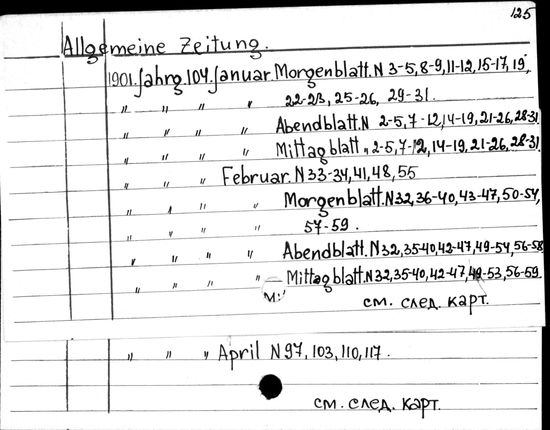 125
Allgemeine Zeitung.
1901. Jahrg. 104. Januar. Morgenblatt. N 3-5, 8-9, 11-12, 15-17, 19,
" " " " 22-23, 25-26, 29-31.
" " " " Abendblatt. N 2-5, 7-12, 14-19, 21-26, 28-31
" " " " Mittagblatt " 2-5, 7-12, 14-19, 21-26, 28-31.
" " " Februar. N 33-34, 41, 48, 55
" " " " Morgenblatt. N 32, 36-40, 43-47, 50-54,
" " " " 57-59.
" " " " Abendblatt. N 32, 35-40, 42-47, 49-54, 56-58
" " " " Mittagblatt. N 32, 35-40, 42-47, 49-53, 56-59.
см. след. карт.
" " " April N 97, 103, 110, 117.
см. след. карт.